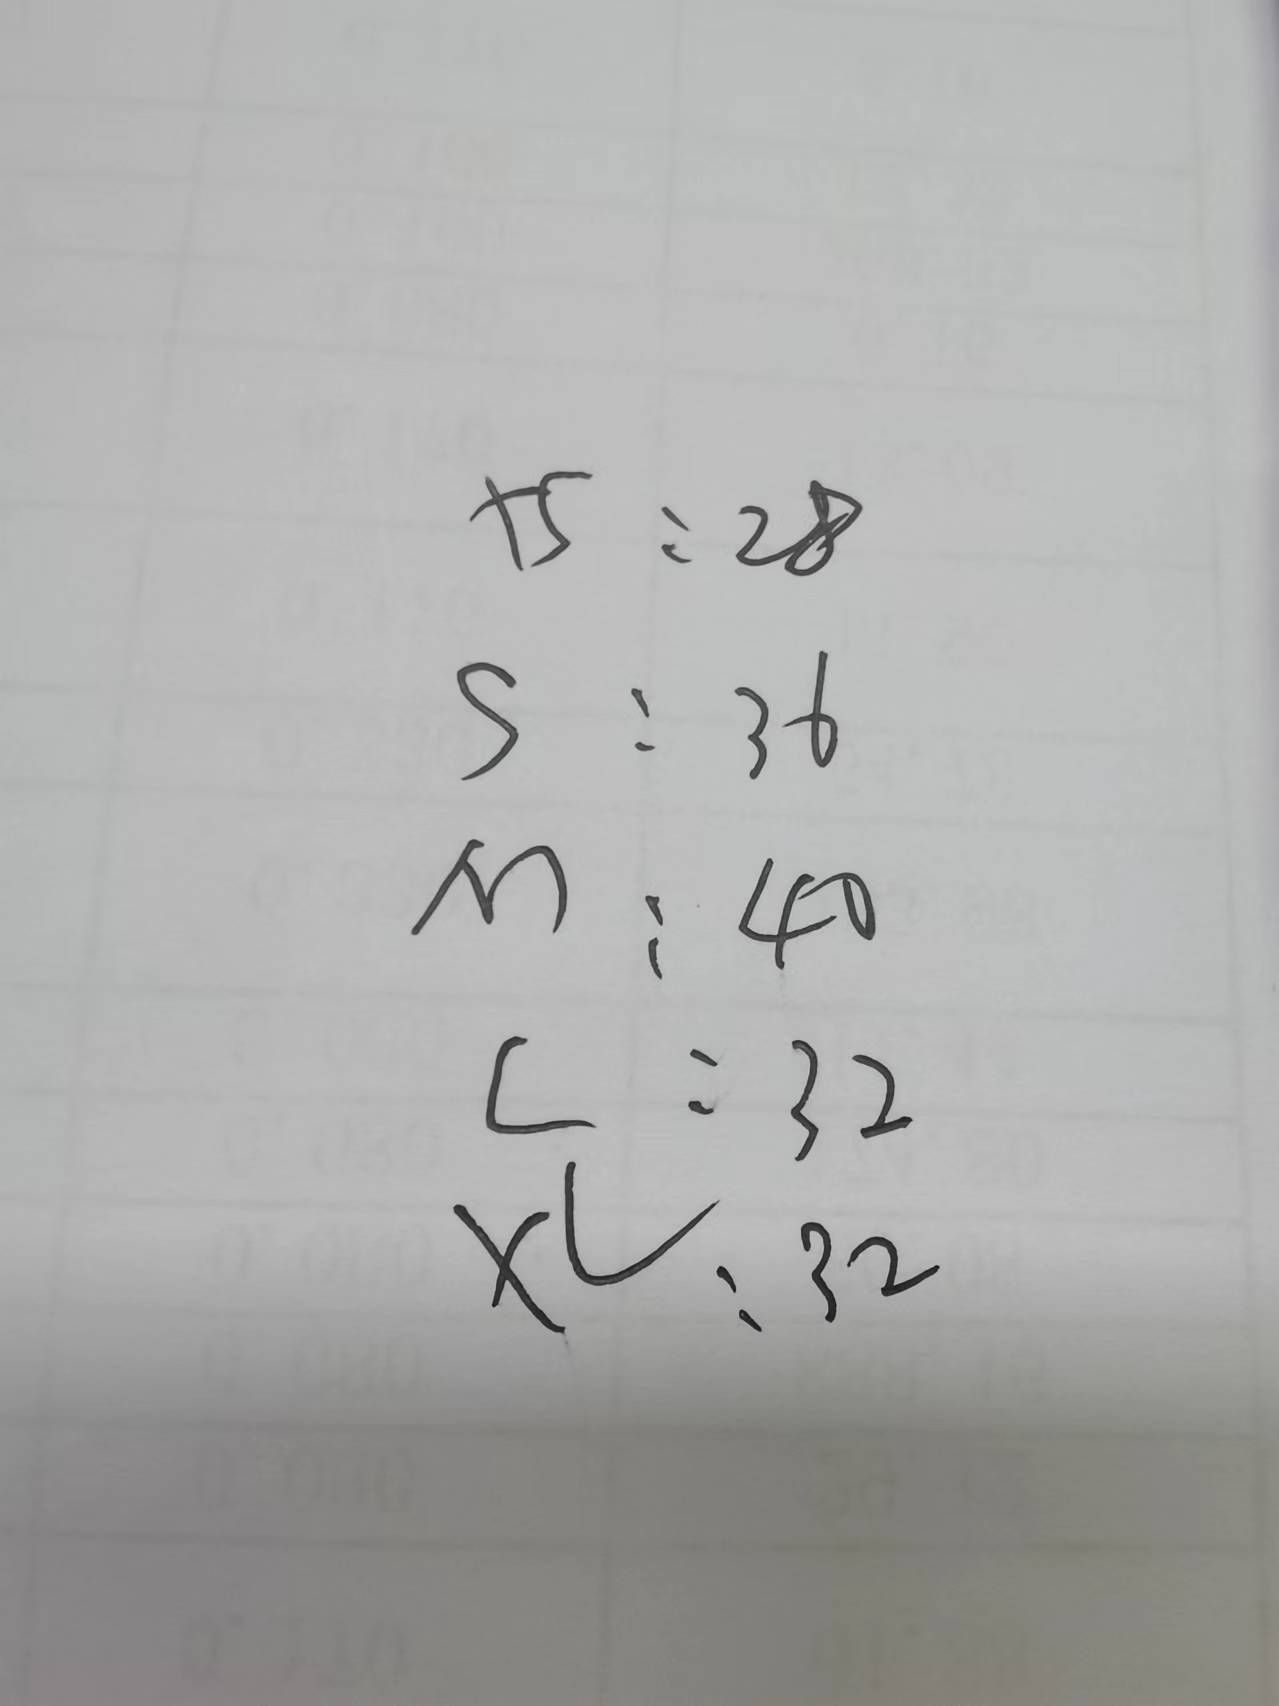 XS:28
S:36
M:40
L:32
XL:32